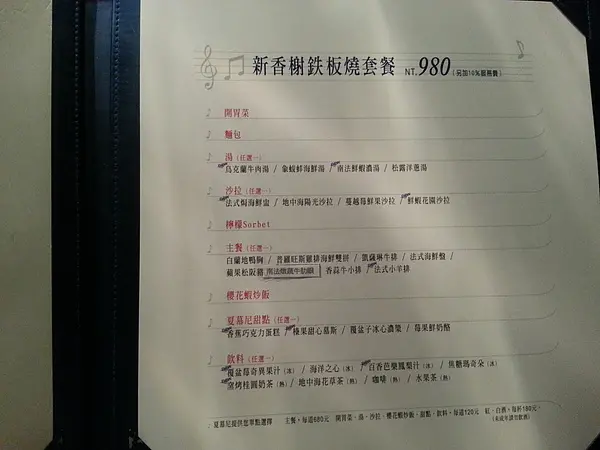 新香榭鉄板燒套餐 NT.980 (另加10%服務費)
開胃菜
麵包
湯 (任選一)
烏克蘭牛肉湯 / 象蚬蚌海鮮湯 / 南法鮮蝦濃湯 / 松露洋蔥湯
沙拉 (任選一)
法式焗海鮮盅 / 地中海陽光沙拉 / 蔓越莓鮮果沙拉 / 鮮蝦花園沙拉
檸檬Sorbet
主餐 (任選一)
白蘭地鴨胸 / 普羅旺斯雞排海鮮雙拼 / 凱薩琳牛排 / 法式海鮮盤 /
蘋果松阪豬 南法燉蔬牛肋眼 香蒜牛小排 / 法式小羊排
櫻花蝦炒飯
夏慕尼甜點 (任選一)
香蕉巧克力蛋糕 / 榛果甜心慕斯 / 覆盆子冰心濃漿 / 莓果鮮奶酪
飲料 (任選一)
覆盆莓奇異果汁 (冰) / 海洋之心 (冰) / 百香芭樂鳳梨汁 (冰) / 焦糖瑪奇朵 (冰)
窯烤桂圓奶茶 (熱) / 地中海花草茶 (熱) / 咖啡 (熱) / 水果茶 (熱)
夏慕尼提供您單點選擇 主餐，每道680元 開胃菜、湯、沙拉、櫻花蝦炒飯、甜點、飲料，每道120元 紅、白酒，每杯180元。
(未成年請勿飲酒)